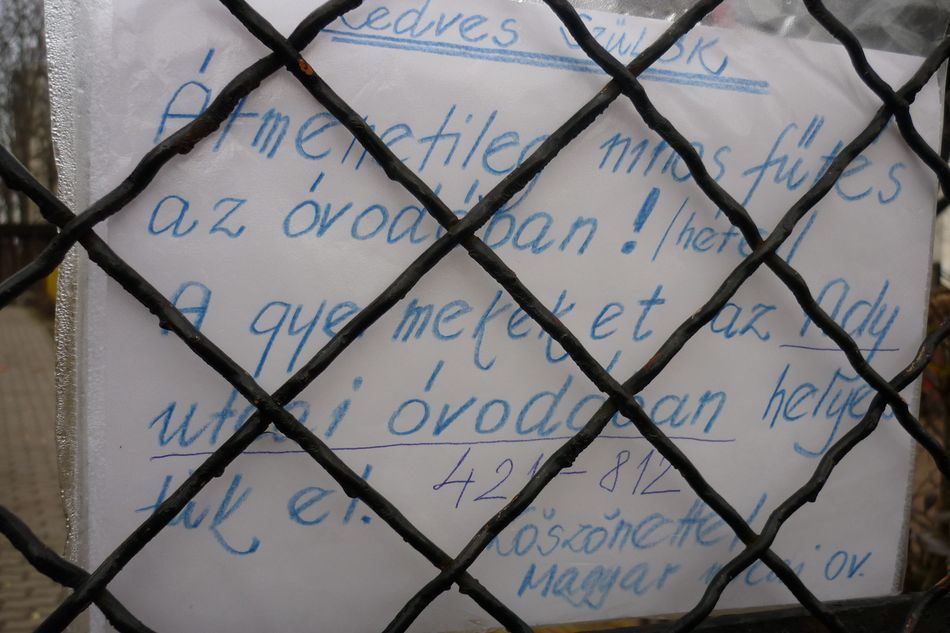 Kedves Szülők
Átmenetileg nincs fűtés
az óvodában! /hétfő/
A gyermekeket az Ady
utcai óvodában helyez
tük el. 421-812
Köszönettel
Magyar utcai óv.